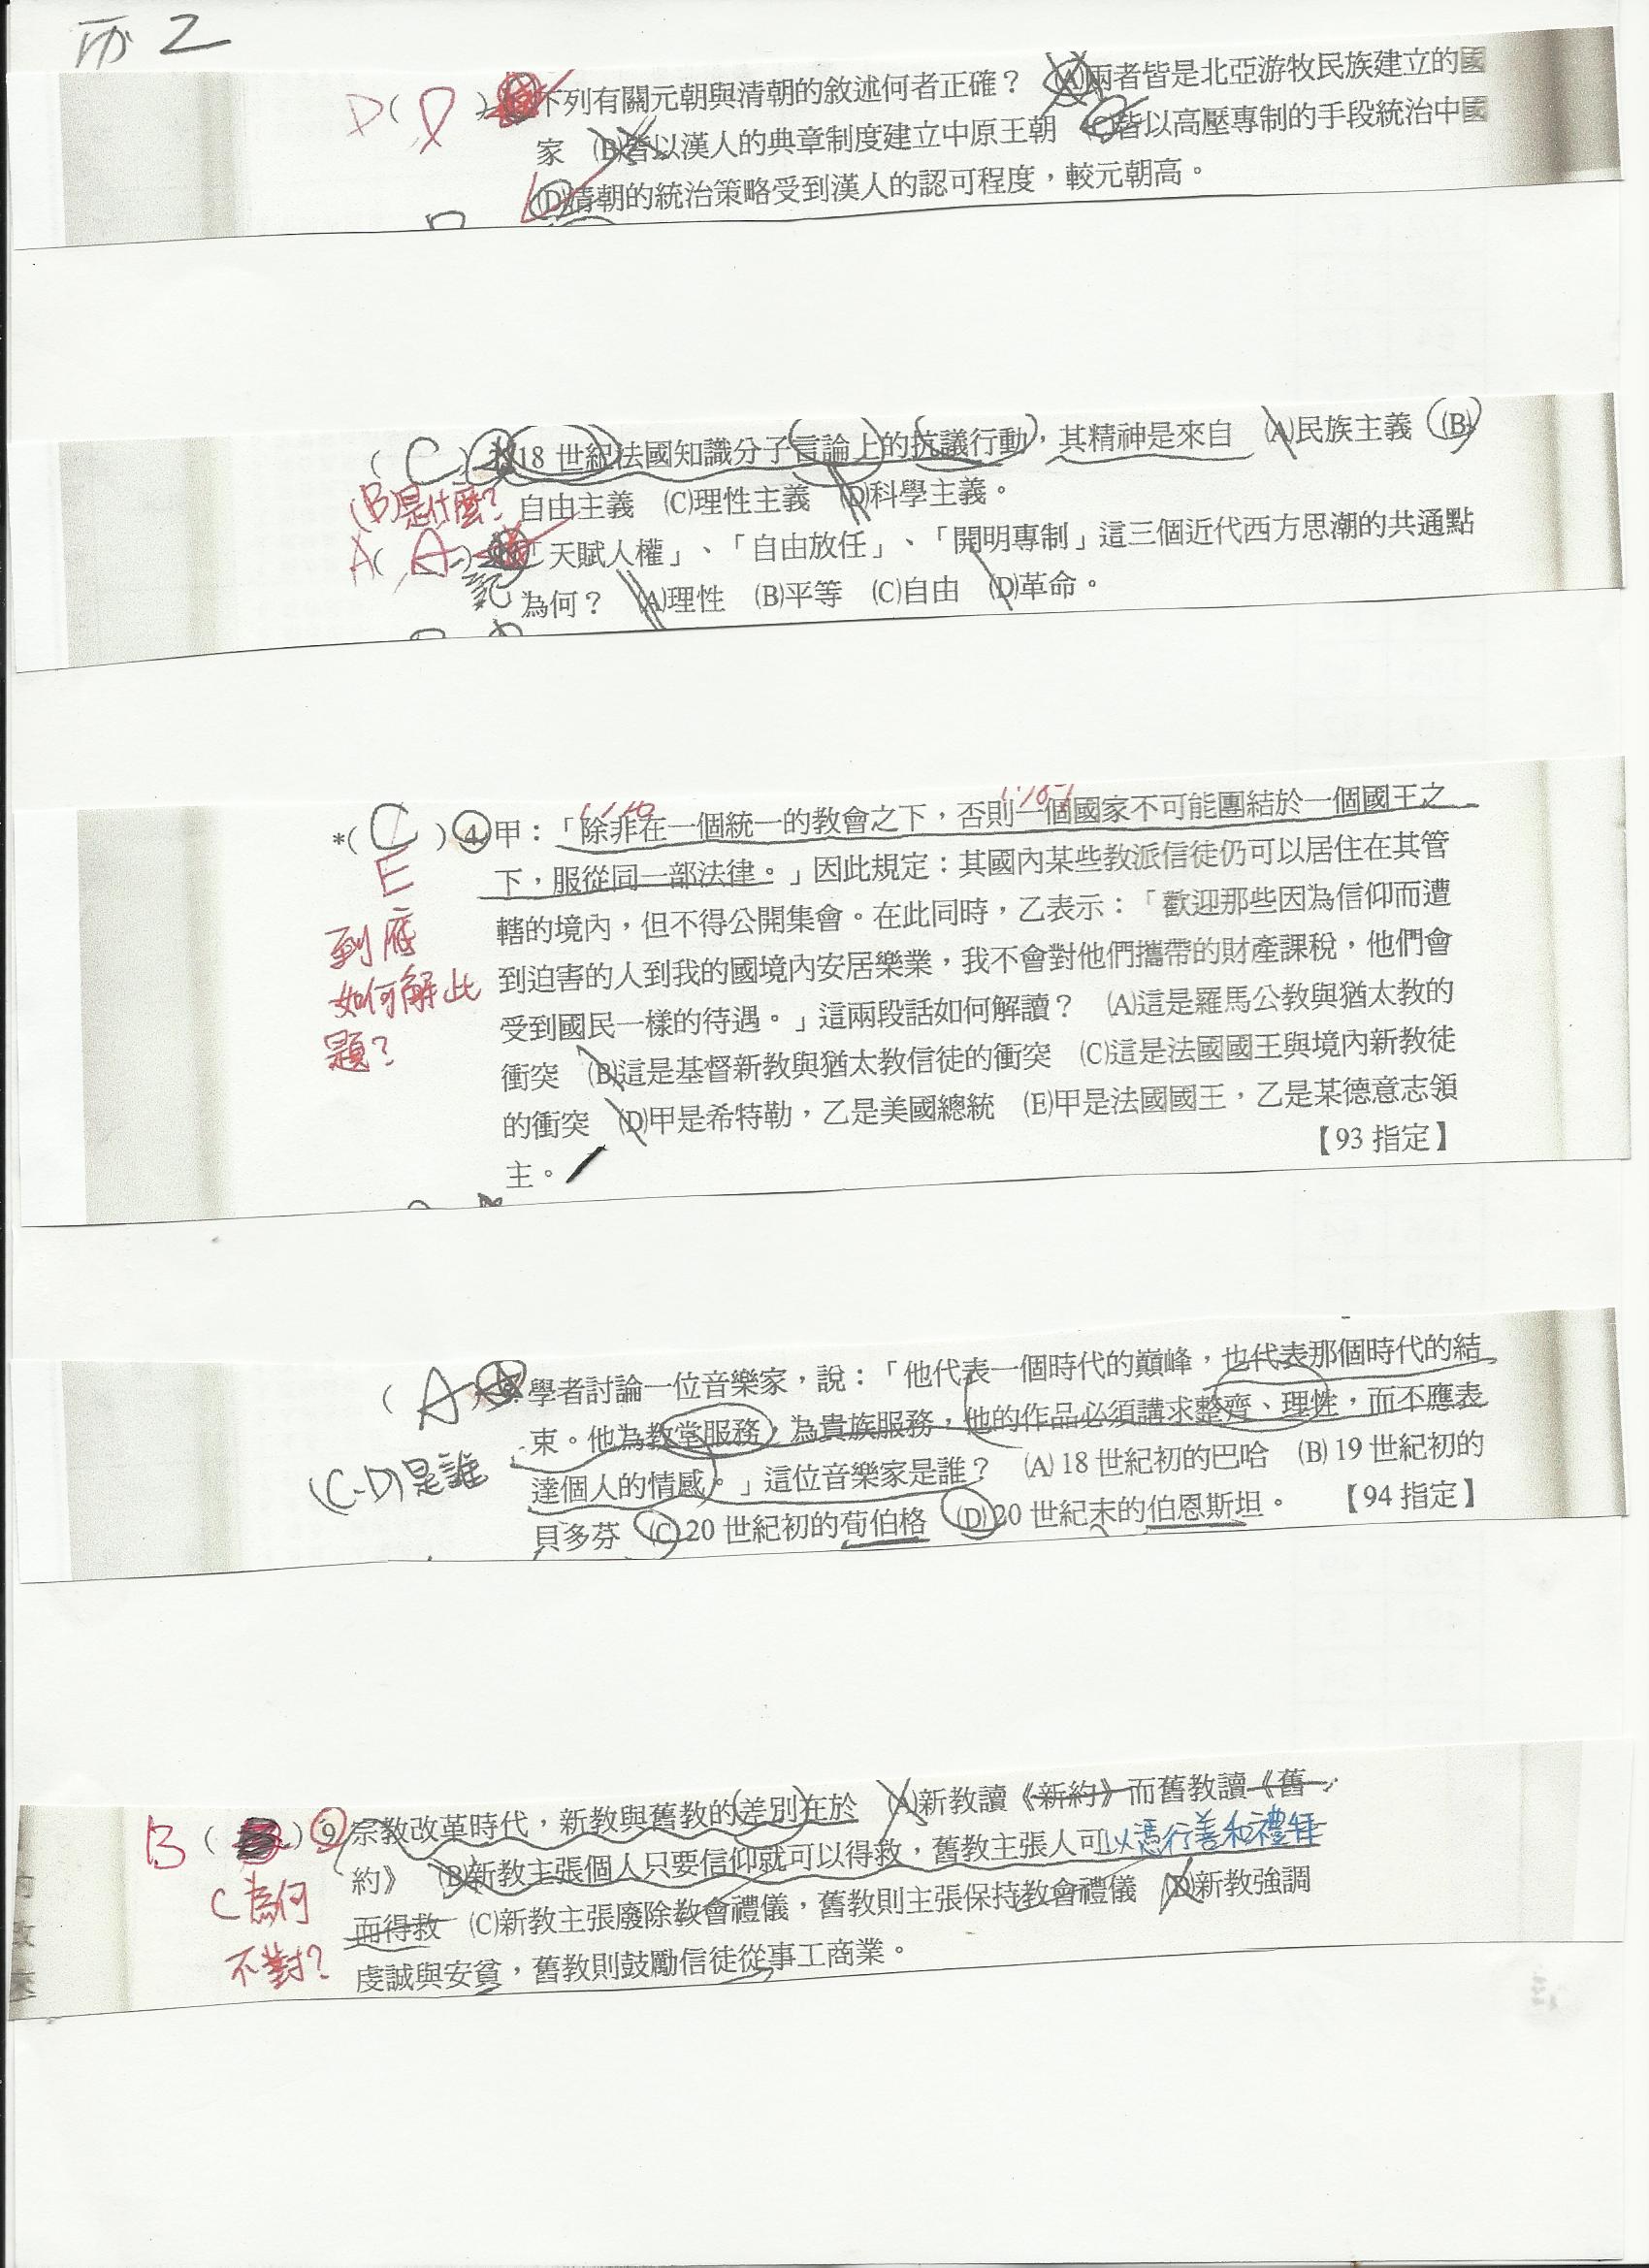 西 2
D( D ) 下列有關元朝與清朝的敘述何者正確？ (A)兩者皆是北亞游牧民族建立的國
家 (B)皆以漢人的典章制度建立中原王朝 (C)皆以高壓專制的手段統治中國
(D)清朝的統治策略受到漢人的認可程度，較元朝高。
( C ) 18 世紀法國知識分子言論上的抗議行動，其精神是來自 (A)民族主義 (B)
自由主義 (C)理性主義 (D)科學主義。
(B)是什麼？
A( A ) 「天賦人權」、「自由放任」、「開明專制」這三個近代西方思潮的共通點
為何？ (A)理性 (B)平等 (C)自由 (D)革命。
記
*( C ) 4.甲：「除非在一個統一的教會之下，否則一個國家不可能團結於一個國王之
下，服從同一部法律。」因此規定：其國內某些教派信徒仍可以居住在其管
轄的境內，但不得公開集會。在此同時，乙表示：「歡迎那些因為信仰而遭
到迫害的人到我的國境內安居樂業，我不會對他們攜帶的財產課稅，他們會
受到國民一樣的待遇。」這兩段話如何解讀？ (A)這是羅馬公教與猶太教的
衝突 (B)這是基督新教與猶太教信徒的衝突 (C)這是法國國王與境內新教徒
的衝突 (D)甲是希特勒，乙是美國總統 (E)甲是法國國王，乙是某德意志領
主。 【93 指定】
E
到底
如何解此
題？
( A ) 學者討論一位音樂家，說：「他代表一個時代的巔峰，也代表那個時代的結
束。他為教堂服務，為貴族服務，他的作品必須講求整齊、理性，而不應表
達個人的情感。」這位音樂家是誰？ (A) 18 世紀初的巴哈 (B) 19 世紀初的
貝多芬 (C) 20 世紀初的荀伯格 (D) 20 世紀末的伯恩斯坦。 【94 指定】
(C-D)是誰
B ( ) 9 宗教改革時代，新教與舊教的差別在於 (A)新教讀《新約》而舊教讀《舊
約》 (B)新教主張個人只要信仰就可以得救，舊教主張人可以憑行善和禮
而得救 (C)新教主張廢除教會禮儀，舊教則主張保持教會禮儀 (D)新教強調
虔誠與安貧，舊教則鼓勵信徒從事工商業。
C 為何
不對？